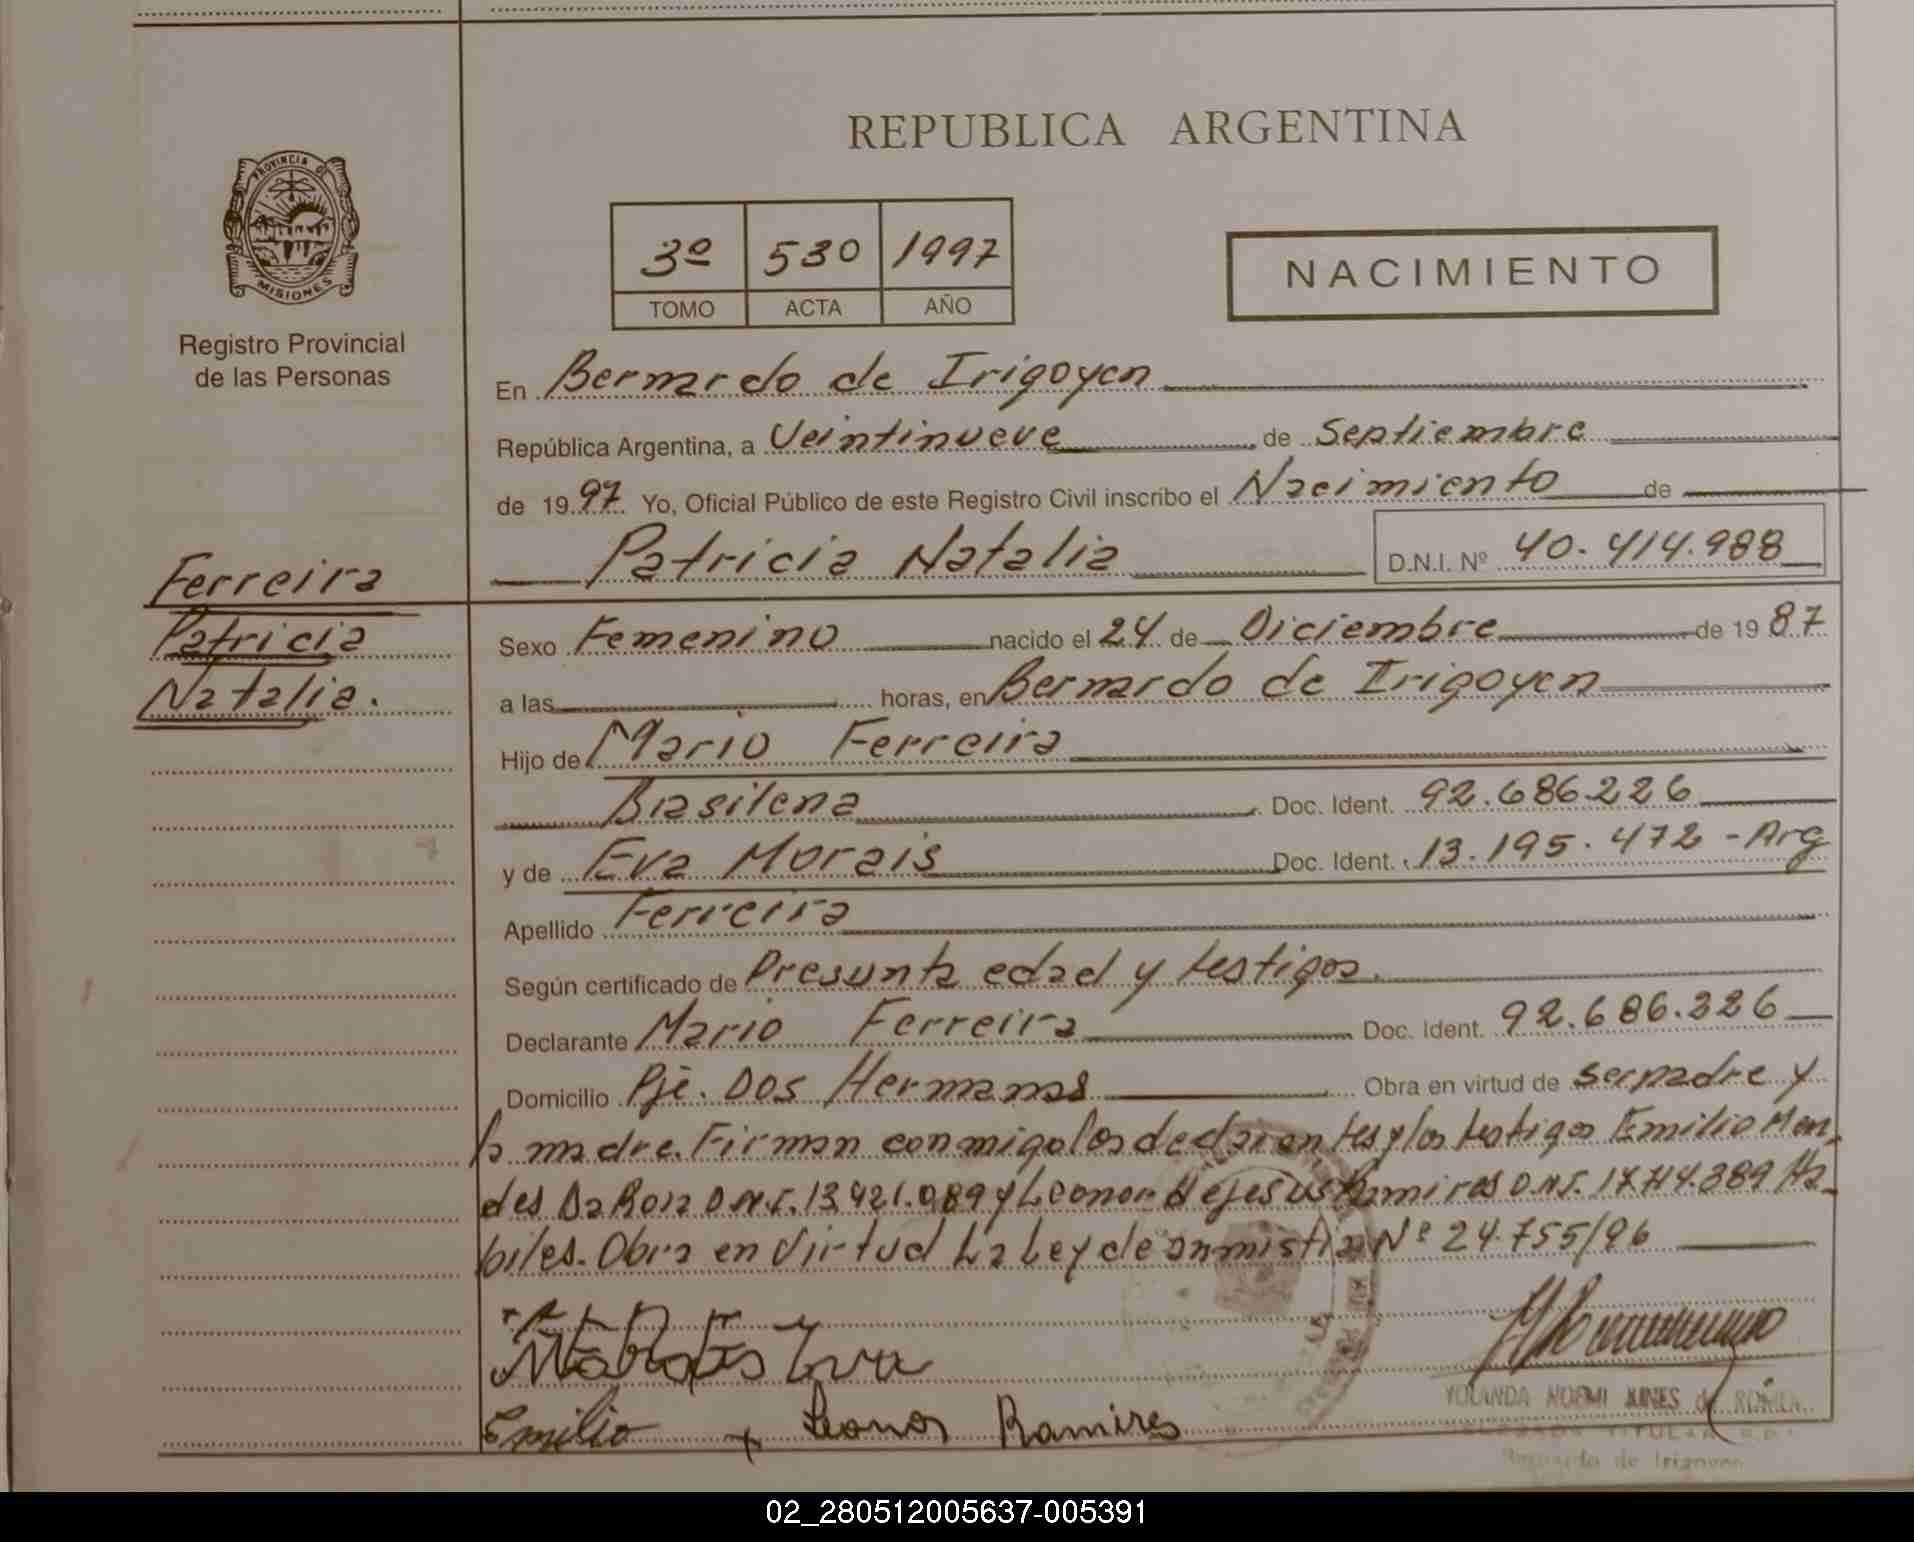 REPUBLICA ARGENTINA
PROVINCIA DE
MISIONES
Registro Provincial
de las Personas
3º 530 1997
TOMO ACTA AÑO
NACIMIENTO
En Bernardo de Irigoyen
República Argentina, a Veintinueve de Septiembre
de 1997 Yo, Oficial Público de este Registro Civil inscribo el Nacimiento de
Patricia Natalia D.N.I. Nº 40.414.988
Ferreira
Patricia
Natalia.
Sexo Femenino nacido el 24 de Diciembre de 1987
a las horas, en Bernardo de Irigoyen
Hijo de Mario Ferreira
Brasilena Doc. Ident. 92.686.226
y de Eva Morais Doc. Ident. 13.195.472 - Arg
Apellido Ferreira
Según certificado de Presunta edad y testigos.
Declarante Mario Ferreira Doc. Ident. 92.686.226
Domicilio Pje. Dos Hermanas Obra en virtud de ser padre y
la madre. Firman conmigo los declarantes y los testigos Emilio Men-
des Da Roza D.N.I. 13.421.089 y Leonor de jesus Ramires D.N.I. 17.414.389 Ha-
biles. Obra en Virtud La Ley de anmistia Nº 24.755/96
Morais Eva
Emilio Leonor Ramires
YOLANDA NOEMI JUNES de
TITULAR
de Irigoyen
02_280512005637-005391